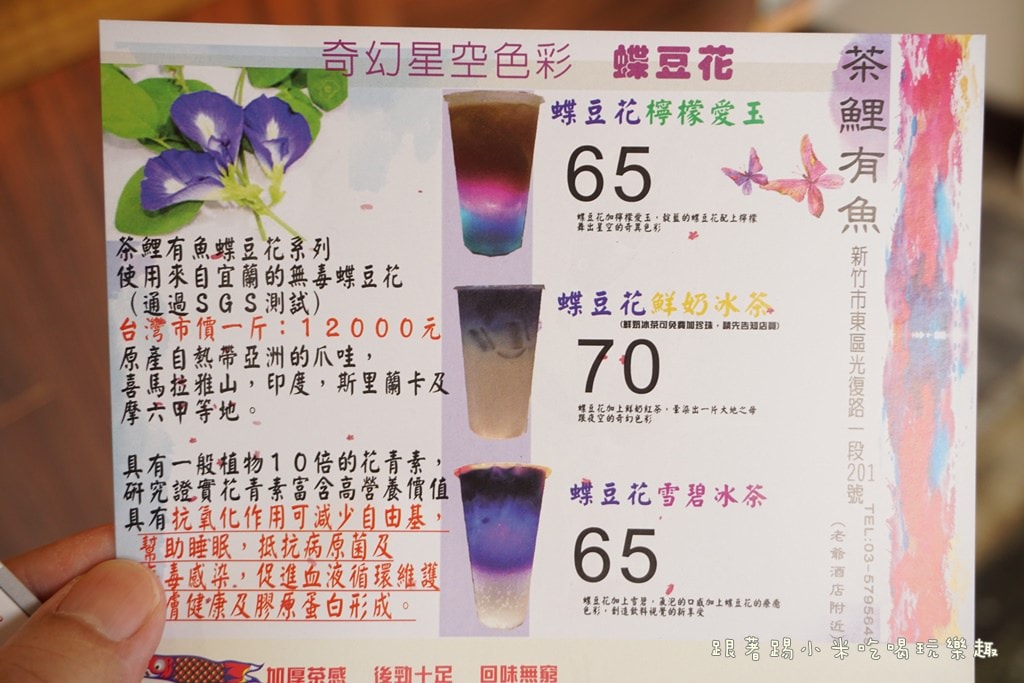 奇幻星空色彩 蝶豆花
茶鯉有魚蝶豆花系列
使用來自宜蘭的無毒蝶豆花
(通過SGS測試)
台灣市價一斤：12000元
原產自熱帶亞洲的爪哇，
喜馬拉雅山，印度，斯里蘭卡及
摩六甲等地。
具有一般植物10倍的花青素，
研究證實花青素富含高營養價值
具有抗氧化作用可減少自由基，
幫助睡眠，抵抗病原菌及
毒感染，促進血液循環維護
膚健康及膠原蛋白形成。
蝶豆花檸檬愛玉
65
蝶豆花加檸檬愛玉，靛藍的蝶豆花配上檸檬
舞出星空的奇異色彩
蝶豆花鮮奶冰茶
(鮮奶冰茶可免費加珍珠，請先告知店員)
70
蝶豆花加上鮮奶紅茶，暈染出一片大地之母
跟夜空的奇幻色彩
蝶豆花雪碧冰茶
65
蝶豆花加上雪碧，氣泡的口感加上蝶豆花的療癒
色彩，創造飲料視覺的新享受
茶鯉有魚
新竹市東區光復路一段201號
TEL:03-579564
(老爺酒店附近
加厚茶感 後勁十足 回味無窮
跟著踢小米吃喝玩樂趣